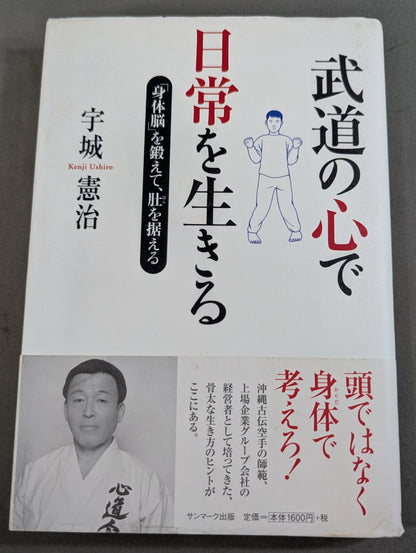 武道の心で
日常を生きる
「身体脳」を鍛えて、肚を据える
はら
宇城憲治
Kenji Ushiro
頭ではなく
身体で
からだ
考えろ!
沖縄古伝空手の師範、
上場企業グループ会社の
経営者として培ってきた、
骨太な生き方のヒントが
ここにある。
サンマーク出版 定価=本体1600円+税
心道